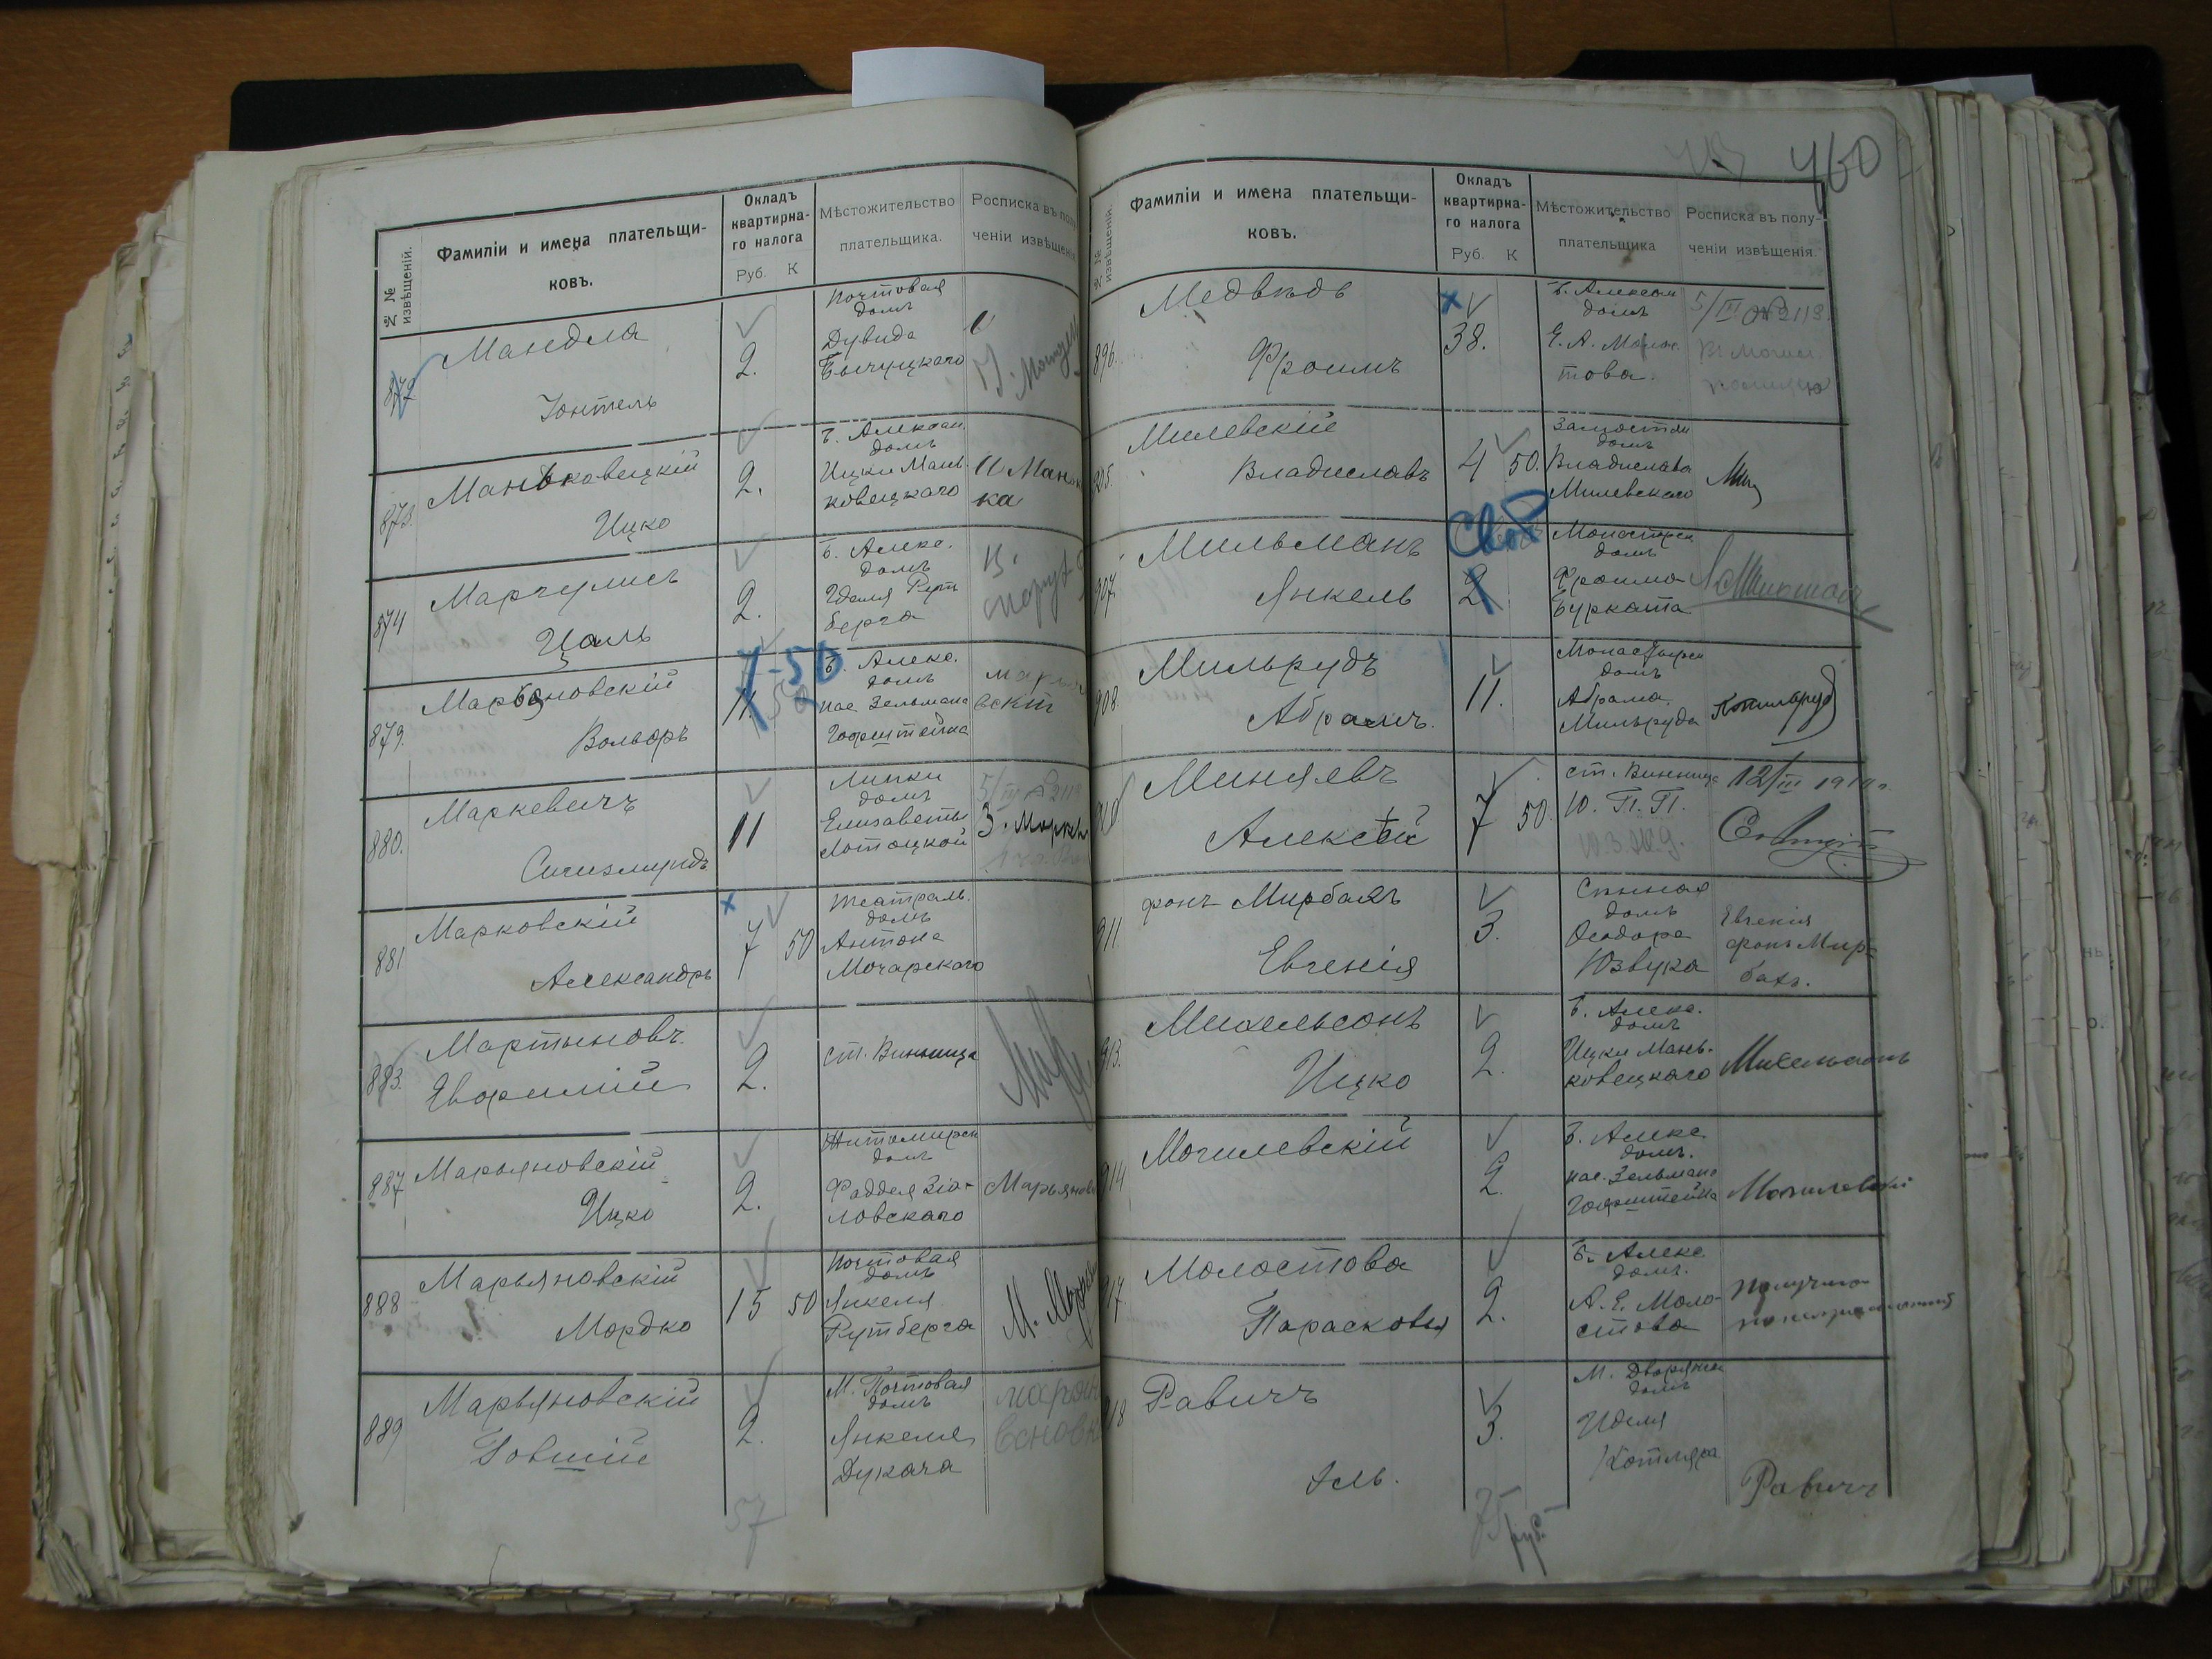 №№ извѣщеній.
Фамиліи и имена плательщи-
ковъ.
Окладъ
квартирна-
го налога
Руб. К
Мѣстожительство
плательщика.
Росписка въ полу-
ченіи извѣщенія
872
Мандла
Іонтель
2.
Почтовая
домъ
Дувида
873.
Маньковецкій
Ицко
2.
Б. Алексан.
домъ
Ицки Мань
ковецкаго
874
Маргулисъ
Цаль
2.
Б. Алекс.
домъ
Рут
берга
879.
Марьяновскій
Вольфъ
7-50
11. 50
Б. Алекс.
домъ
нас. Зельмана
Гофштейна
880.
Маркевичъ
Сигизмундъ
11
Липки
домъ
Елизаветы
5/III № 2119
З. Марке
881
Марковскій
Александръ
7 50
Театраль.
домъ
Антона
Мочарскаго
883.
Мартыновъ
Евфимій
2.
ст. Винница
887
Марьяновскій
Ицко
2.
Житомирск
домъ
Фаддея Зіо-
ловскаго
Марьянов
888
Марьяновскій
Мордко
15 50
Почтовая
домъ
Янкеля
Рутберга
889
Марьяновскій
Говшій
2.
М. Почтовая
домъ
Янкеля
Дукача
57
460
№№ извѣщеній.
Фамиліи и имена плательщи-
ковъ.
Окладъ
квартирна-
го налога
Руб. К
Мѣстожительство
плательщика
Росписка въ полу-
ченіи извѣщенія.
896.
Медвѣдь
Фроимъ
38.
Б. Алексан
домъ
Е. А. Молос.
това.
5/III № 2119.
905.
Милевскій
Владиславъ
4 50.
Замостян
домъ
Владислава
Милевскаго
907.
Мильманъ
Янкель
2
Монастырск
домъ
Фроима
Бурката
908.
Мильрудъ
Абрамъ.
11.
Монастырск
домъ
Абрама
Мильруда
910
Миняевъ
Алексѣй
7 50.
ст. Винница
Ю. П. П.
Ю.З.Ж.Д.
12/III 1914 г.
911.
фонъ Мирбахъ
Евгенія
3.
Сѣнная
домъ
Ѳеодора
Юзвука
Евгенія
фонъ Мир-
бахъ.
913.
Михельсонъ
Ицко
2.
Б. Алекс.
домъ
Ицки Мань-
ковецкаго
Михельсонъ
914
Могилевскій
2.
Б. Алекс
домъ.
нас. Зельмана
Гофштейна
Могилевскій
917.
Молостова
Парасковья
2.
Б. Алекс
домъ.
А. Е. Моло-
стова
918
Равичъ
Эль.
3.
М. Дворянск
домъ
Иделя
Котляра
Равичъ
75
руб.